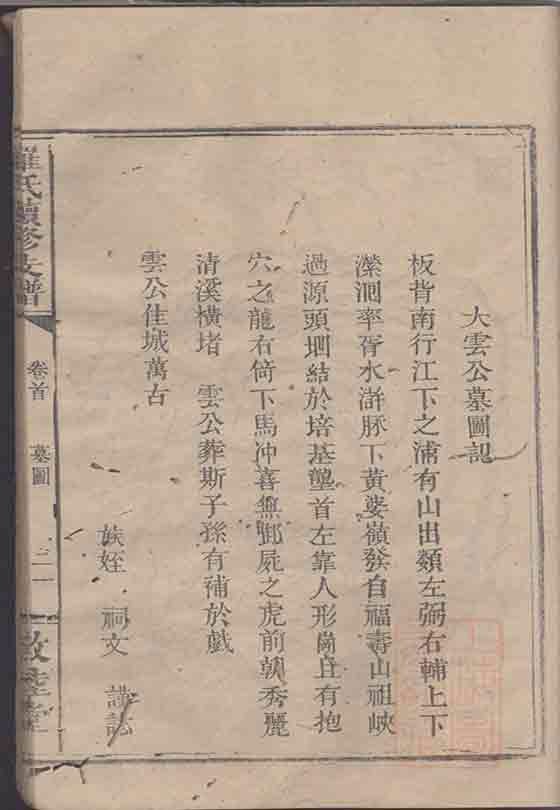 大雲公墓圖記
板背南行江下之浦有山出類左弼右輔上下
瀠洄率胥水滸脉下黃婆嶺發自福壽山祖峽
過源頭垇結於培基壟首左靠人形崗且有抱
穴之龍右倚下馬冲喜無卸屍之虎前朝秀麗
清溪橫堵 雲公葬斯子孫有補於戲
雲公佳城萬古
族姪 祠文 謹誌
羅氏續修支譜
卷首 墓圖
敦睦堂